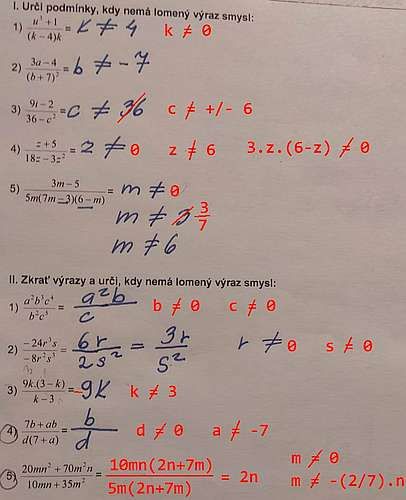 I. Urči podmínky, kdy nemá lomený výraz smysl:
1) (u³+1)/((k−4)k) = k ≠ 4 k ≠ 0
2) (3a−4)/((b+7)²) = b ≠ −7
3) (9i−2)/(36−c²) = c ≠ 36 c ≠ +/- 6
4) (z+5)/(18z−3z²) = z ≠ 0 z ≠ 6 3.z.(6-z) ≠ 0
5) (3m−5)/(5m(7m−3)(6−m)) = m ≠ 0
m ≠ 3 3/7
m ≠ 6
II. Zkrať výrazy a urči, kdy nemá lomený výraz smysl:
1) a²b³c⁴/b²c⁵ = a²b/c b ≠ 0 c ≠ 0
2) −24r³s/−8r²s³ = 6r/2s² = 3r/s² r ≠ 0 s ≠ 0
3) 9k.(3−k)/(k−3) = -9k k ≠ 3
4) (7b+ab)/(d(7+a)) = b/d d ≠ 0 a ≠ -7
5) (20mn²+70m²n)/(10mn+35m²) = 10mn(2n+7m)/5m(2n+7m) = 2n m ≠ 0
m ≠ -(2/7).n